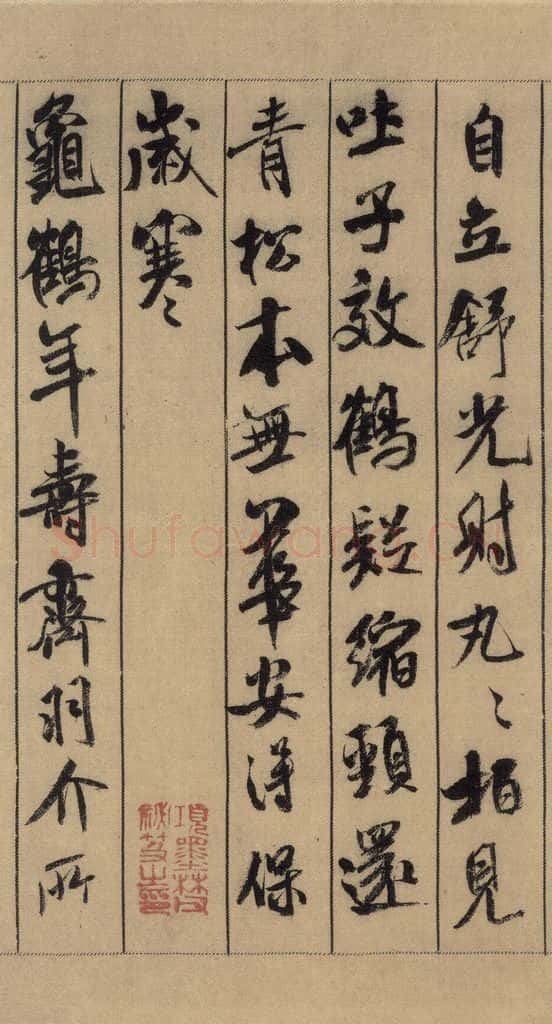 自立舒光射丸〻柏見
吐子效鶴疑縮頸還
青松本無華安得保
歲寒
龜鶴年壽齊羽介所
項墨林父
秘笈之印